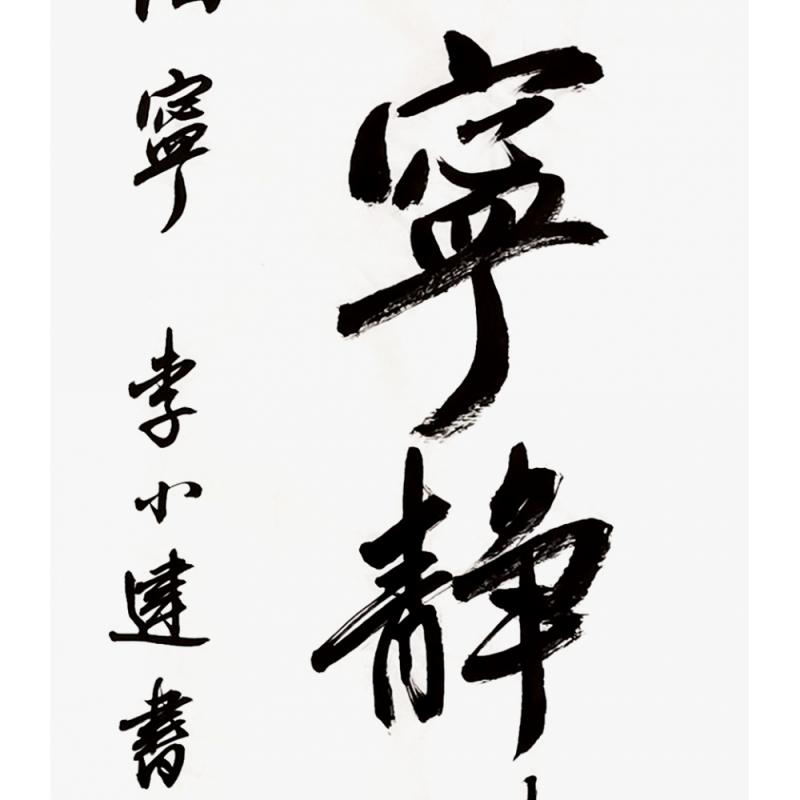 寧静
寧 李小達書